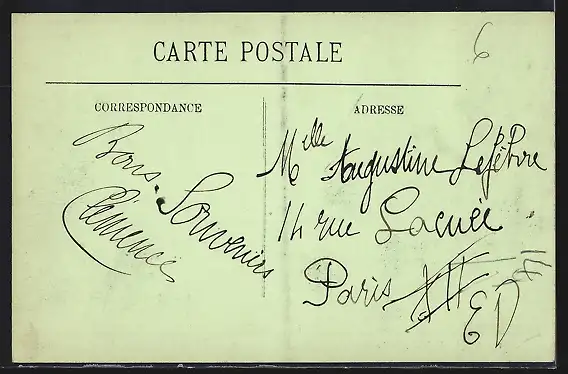 6
CARTE POSTALE
CORRESPONDANCE
ADRESSE
Bons Souvenirs
Clémence
Mlle Augustine Lefebvre
14 rue Lacuée
Paris XII
14
ED